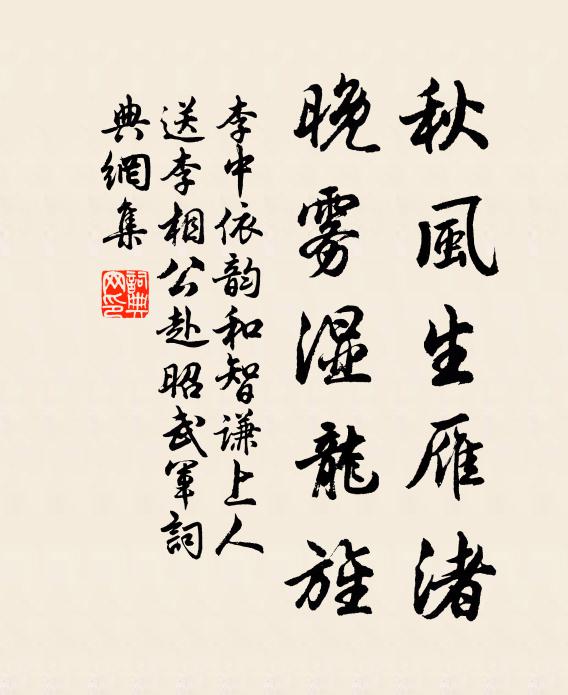 秋風生雁渚
晚雾湿龍旌
李中依韵和智谦上人
送李相公赴昭武軍詞
典網集
詞典網印